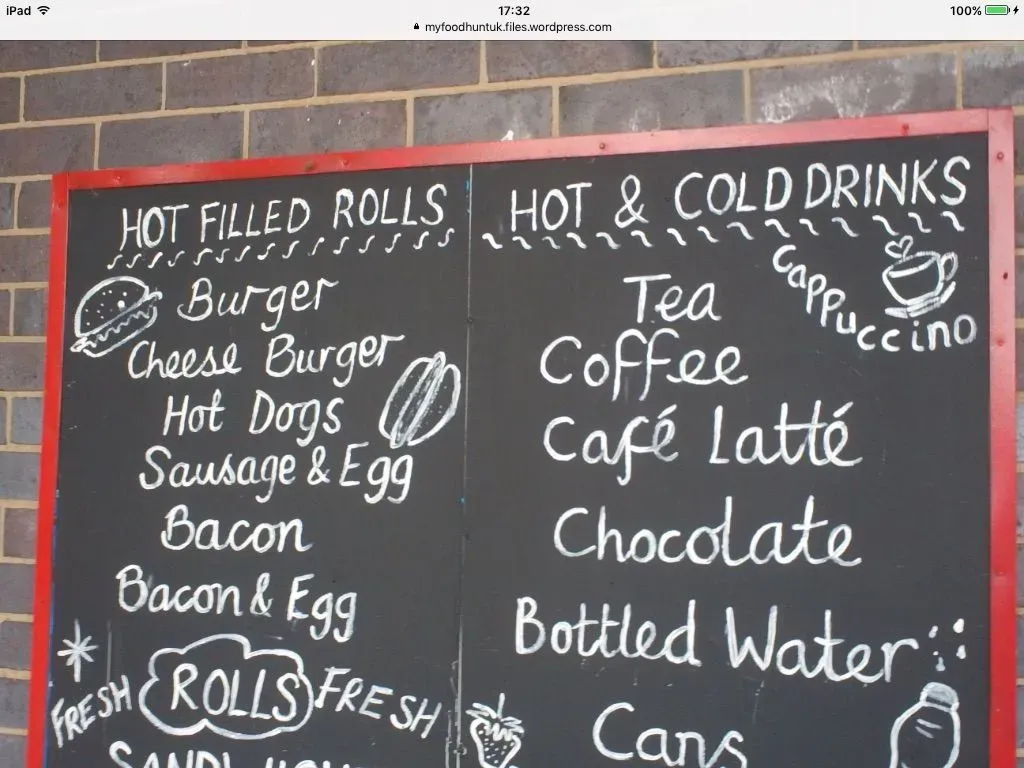 iPad
17:32
100%
myfoodhuntuk.files.wordpress.com
HOT FILLED ROLLS
Burger
Cheese Burger
Hot Dogs
Sausage & Egg
Bacon
Bacon & Egg
FRESH ROLLS FRESH
HOT & COLD DRINKS
Cappuccino
Tea
Coffee
Café Latté
Chocolate
Bottled Water
Cans